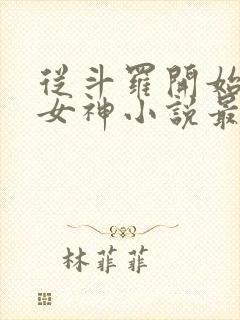 從斗羅開始
女神小說最
林菲菲